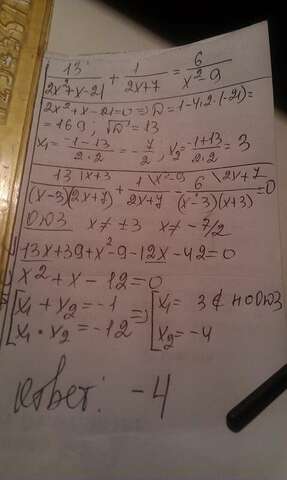 13/(2x²+x-21) + 1/(2x+7) = 6/(x²-9)
2x²+x-21=0 => D=1-4·2·(-21)=
=169; √D=13
x₁=(-1-13)/(2·2)=-7/2, x₂=(-1+13)/(2·2)=3
13 \x+3/((x-3)(2x+7)) + 1 \x²-9/(2x+7) - 6 \2x+7/((x-3)(x+3))=0
ОДЗ x≠±3 x≠-7/2
13x+39+x²-9-12x-42=0
x²+x-12=0
[x₁+x₂=-1 => [x₁=3 ∉ по ОДЗ
x₁·x₂=-12 x₂=-4
Ответ: -4